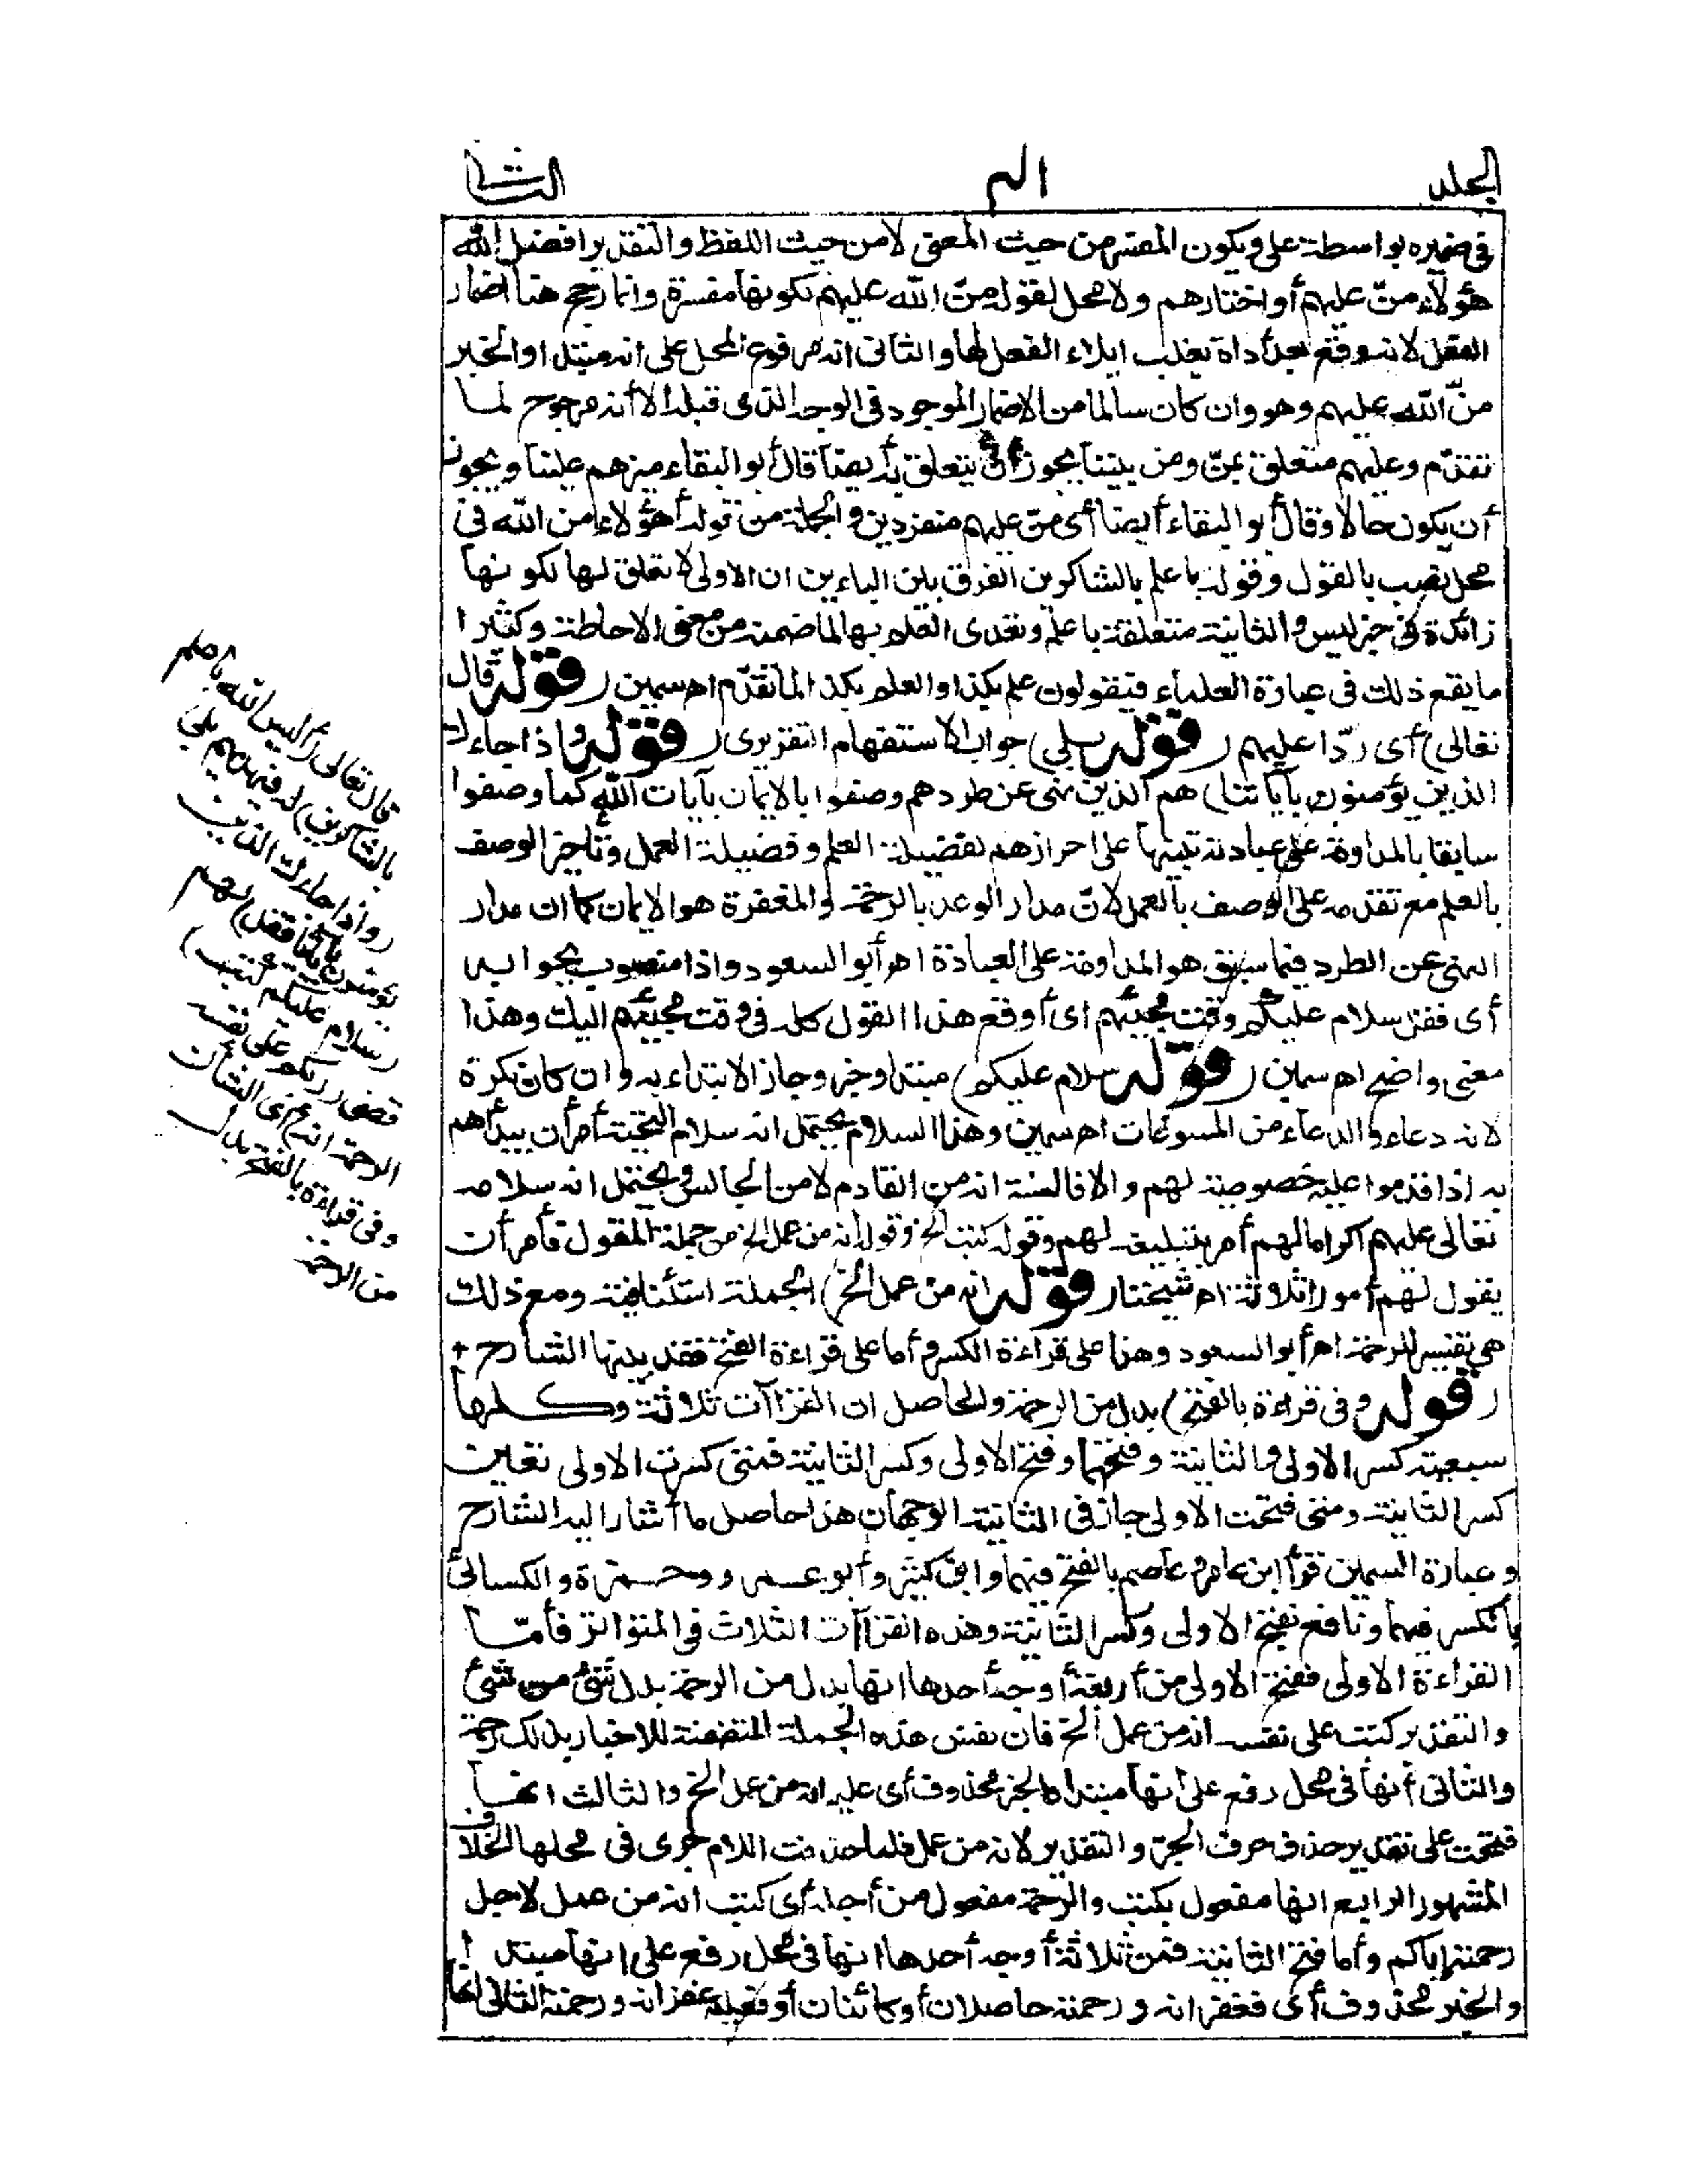 المجلد الم الثانى
فى ضميره بواسطة على ويكون المفسر من حيث المعنى لا من حيث اللفظ والتقدير أفضل الله
هؤلاء منّ عليهم أو اختارهم ولا محل لقوله منّ الله عليهم لكونها مفسرة وانما رجح هنا اضمار
الفعل لانه وقع بعد أداة يغلب ايلاء الفعل لها والثانى انه مرفوع المحل على انه مبتدا والخبر
منّ الله عليهم وهو وان كان سالما من الاضمار الموجود فى الوجه الذى قبله الا أنه مرجوح لما
تقدّم وعليهم متعلق بمنّ ومن بيننا يجوز أن يتعلق به أيضا قال أبو البقاء ميزهم علينا ويجوز
أن يكون حالا وقال أبو البقاء أيضا أى منّ عليهم منفردين والجملة من قوله أهؤلاء من الله فى
محل نصب بالقول وقوله بأعلم بالشاكرين الفرق بين الباءين ان الاولى لا تعلق لها لكونها
زائدة فى خبر ليس والثانية متعلقة باعلم وتعدى العلم بها لما ضمنه من معنى الاحاطة وكثيرا
ما يقع ذلك فى عبارة العلماء فيقولون علم بكذا والعلم بكذا لما تقدّم اهـ سمين (قوله قال
تعالى) أى ردّا عليهم (قوله بلى) جواب الاستفهام التقريرى (قوله واذا جاءك
الذين يؤمنون بآياتنا) هم الذين نهى عن طردهم وصفوا بالايمان بآيات الله كما وصفوا
سابقا بالمداومة على عبادته تنبيها على احرازهم لفضيلة العلم وفضيلة العمل وتأخير الوصف
بالعلم مع تقدمه على الوصف بالعمل لانّ مدار الوعد بالرحمة والمغفرة هو الايمان كما ان مدار
النهى عن الطرد فيما سبق هو المداومة على العبادة اهـ أبو السعود واذا منصوب بجوابه
أى فقل سلام عليكم وقت مجيئهم اى أوقع هذا القول كله فى وقت مجيئهم اليك وهذا
معنى واضح اهـ سمين (قوله سلام عليكم) مبتدا وخبر وجاز الابتداء به وان كان نكرة
لانه دعاء والدعاء من المسوغات اهـ سمين وهذا السلام يحتمل انه سلام التحية أمر أن يبدأهم
به اذا قدموا عليه خصوصية لهم والا فالسنة انه من القادم لا من الجالس ويحتمل انه سلامه
تعالى عليهم اكراما لهم أمر بتبليغه لهم وقوله كتب الخ وقوله انه من عمل الخ من جملة المقول فأمر أن
يقول لهم أمورا ثلاثة اهـ شيخنا (قوله انه من عمل الخ) الجملة استئنافية ومع ذلك
هى تفسير للرحمة اهـ أبو السعود وهذا على قراءة الكسر وأما على قراءة الفتح فقد بينها الشارح +
(قوله وفى قراءة بالفتح) بدل من الرحمة والحاصل ان القراآت ثلاثة وكلها
سبعية كسر الاولى والثانية وفتحهما وفتح الاولى وكسر الثانية فمتى كسرت الاولى تعين
كسر الثانية ومتى فتحت الاولى جاز فى الثانية الوجهان هذا حاصل ما أشار اليه الشارح
وعبارة السمين قرأ ابن عامر وعاصم بالفتح فيهما وابن كثير وأبو عمرو وحمزة والكسائى
بالكسر فيهما ونافع بفتح الاولى وكسر الثانية وهذه القراآت الثلاث فى المتواتر فأمّا
القراءة الاولى ففتح الاولى من أربعة أوجه أحدها انها بدل من الرحمة بدل شئ من شئ
والتقدير كتب على نفسه انه من عمل الخ فان نفس هذه الجملة المتضمنة للاخبار بذلك رحمة
والثانى أنها فى محل رفع على أنها مبتدا والخبر محذوف أى عليه انه من عمل الخ والثالث انها
فتحت على تقدير حذف حرف الجرّ والتقدير لانه من عمل فلما حذفت اللام جرى فى محلها الخلاف
المشهور الرابع انها مفعول بكتب والرحمة مفعول من أجله أى كتب انه من عمل لاجل
رحمته إياكم وأما فتح الثانية فمن ثلاثة أوجه أحدها انها فى محل رفع على انها مبتدا
والخبر محذوف أى فغفرانه ورحمته حاصلان أو كائنان أو فعليه غفرانه ورحمته الثانى انها
قال تعالى (أليس الله بأعلم
بالشاكرين) له فيهديهم بلى
(واذا جاءك الذين
يؤمنون بآياتنا فقل) لهم
(سلام عليكم كتب)
قضى (ربكم على نفسه
الرحمة انه) أى الشأن
وفى قراءة بالفتح بدل
من الرحمة